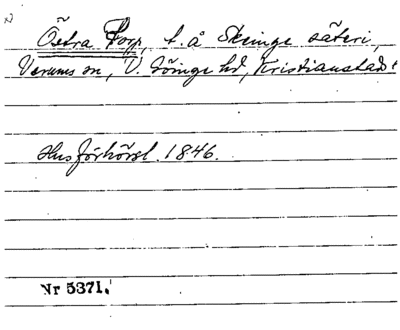 Östra Torp, t. å Skeinge säteri,
Verums sn, V. Göinge hd, Kristianstads l
Husförhörsl. 1846.
Nr 5371.